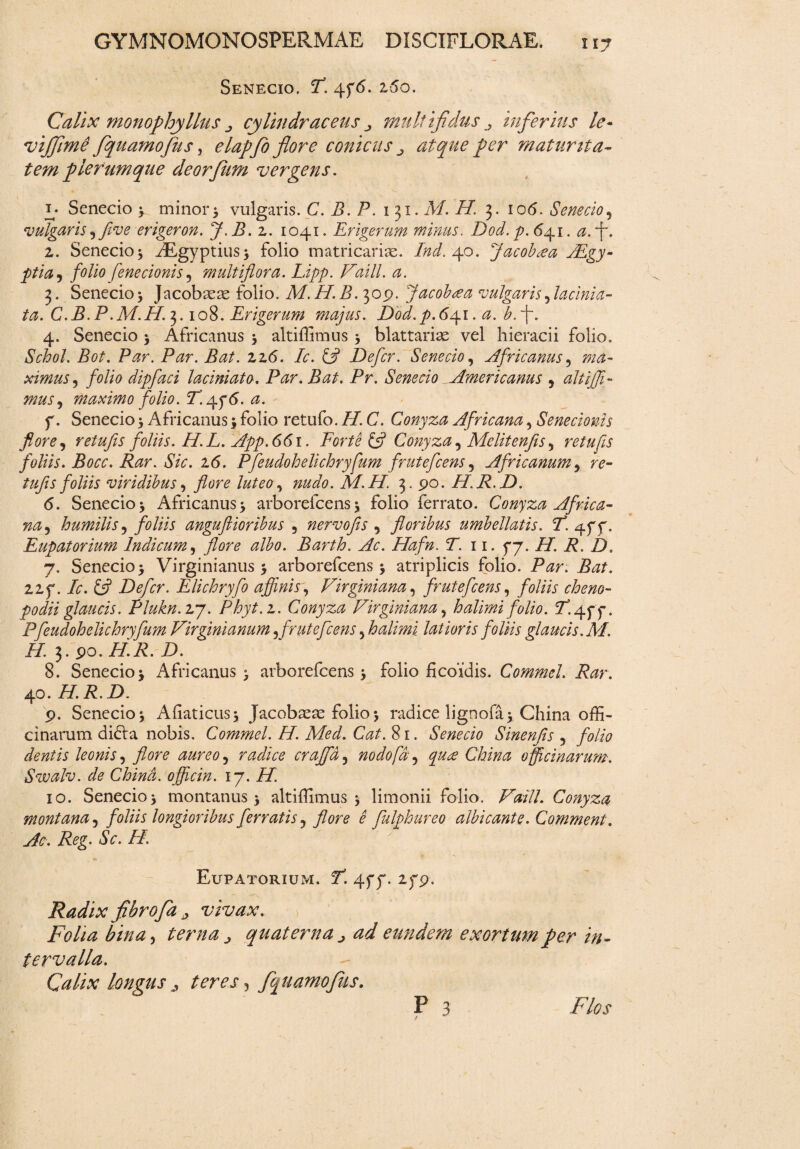 GYMNOMONOSPERMAE DISCIFLORAE. 117
SENECIO. T. 456. 260.
Calix monophyllus, cylindraceus, multifidus, inferius le-
vissimè squamosus, elapso flore conicus, atque per maturita-
tem plerumque deorsum vergens.
1. Senecio; minor; vulgaris. C. B. P. 131. M. H. 3. 106. Senecio,
vulgaris, sive erigeron. J. B. 2. 1041. Erigerum minus. Dod. p. 641. a. †.
2. Senecio; Ægyptius; folio matricariæ. Ind. 40. Jacobæa Ægy-
ptia, folio senecionis, multiflora. Lipp. Vaill. a.
3. Senecio; Jacobææ folio. M. H. B. 309. Jacobæa vulgaris, lacinia-
ta. C. B. P. M. H. 3. 108. Erigerum majus. Dod. p. 641. a. b. †.
4. Senecio; Africanus; altissimus; blattariæ vel hieracii folio.
Schol. Bot. Par. Par. Bat. 226. Ic. & Descr. Senecio, Africanus, ma-
ximus, folio dipsaci laciniato. Par. Bat. Pr. Senecio Americanus, altissi-
mus, maximo folio. T. 456. a.
5. Senecio; Africanus; folio retuso. H. C. Conyza Africana, Senecionis
flore, retusis foliis. H. L. App. 661. Fortè & Conyza, Melitensis, retusis
foliis. Bocc. Rar. Sic. 26. Pseudohelichrysum frutescens, Africanum, re-
tusis foliis viridibus, flore luteo, nudo. M. H. 3. 90. H. R. D.
6. Senecio; Africanus; arborescens; folio serrato. Conyza Africa-
na, humilis, foliis angustioribus, nervosis, floribus umbellatis. T. 455.
Eupatorium Indicum, flore albo. Barth. Ac. Hafn. T. 11. 57. H. R. D.
7. Senecio; Virginianus; arborescens; atriplicis folio. Par. Bat.
225. Ic. & Descr. Elichryso affinis, Virginiana, frutescens, foliis cheno-
podii glaucis. Plukn. 27. Phyt. 2. Conyza Virginiana, halimi folio. T. 455.
Pseudohelichrysum Virginianum, frutescens, halimi latioris foliis glaucis. M.
H. 3. 90. H. R. D.
8. Senecio; Africanus; arborescens; folio ficoïdis. Commel. Rar.
40. H. R. D.
9. Senecio; Asiaticus; Jacobææ folio; radice lignosâ; China offi-
cinarum dicta nobis. Commel. H. Med. Cat. 81. Senecio Sinensis, folio
dentis leonis, flore aureo, radice crassâ, nodosâ, quæ China officinarum.
Swalv. de Chinâ. officin. 17. H.
10. Senecio; montanus; altissimus; limonii folio. Vaill. Conyza
montana, foliis longioribus serratis, flore è sulphureo albicante. Comment.
Ac. Reg. Sc. H.
EUPATORIUM. T. 455. 259.
Radix fibrosa, vivax.
Folia bina, terna, quaterna, ad eundem exortum per in-
tervalla.
Calix longus, teres, squamosus.
P 3 Flos